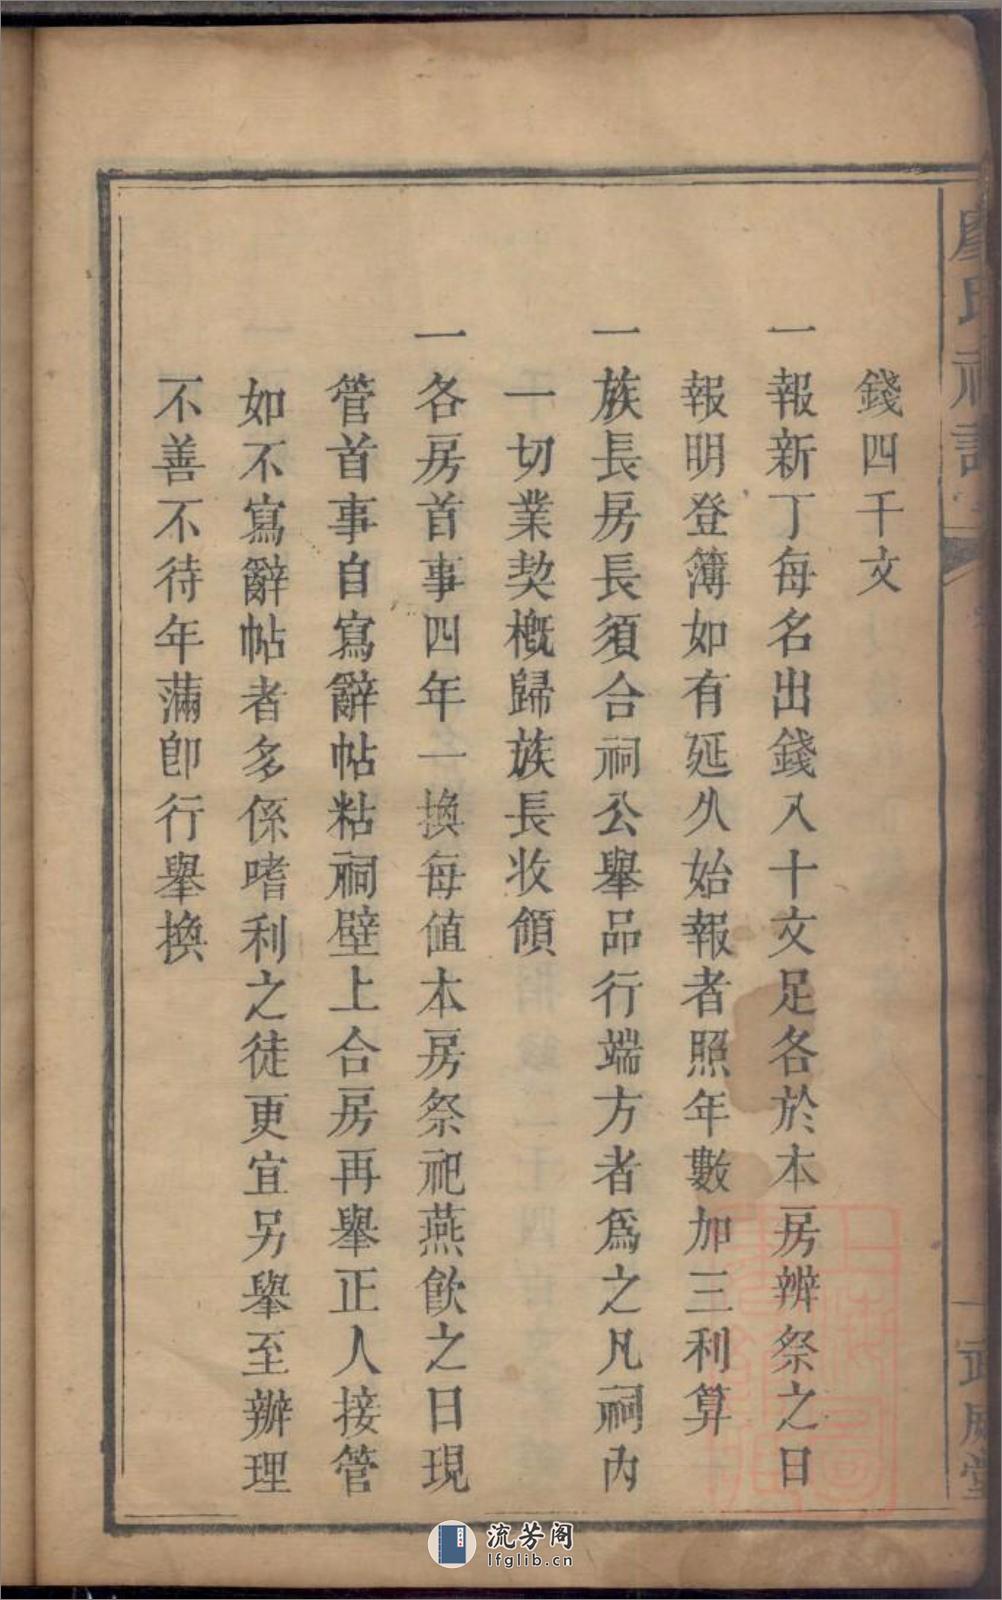 錢四千文
一報新丁每名出錢八十文足各於本房辦祭之日
報明登簿如有延久始報者照年數加三利算
一族長房長須合祠公舉品行端方者爲之凡祠內
一切業契概歸族長收領
一各房首事四年一換每値本房祭祀燕飮之日現
管首事自寫辭帖粘祠壁上合房再舉正人接管
如不寫辭帖者多係嗜利之徒更宜另舉至辦理
不善不待年滿卽行舉換
流芳阁
lfglib.cn